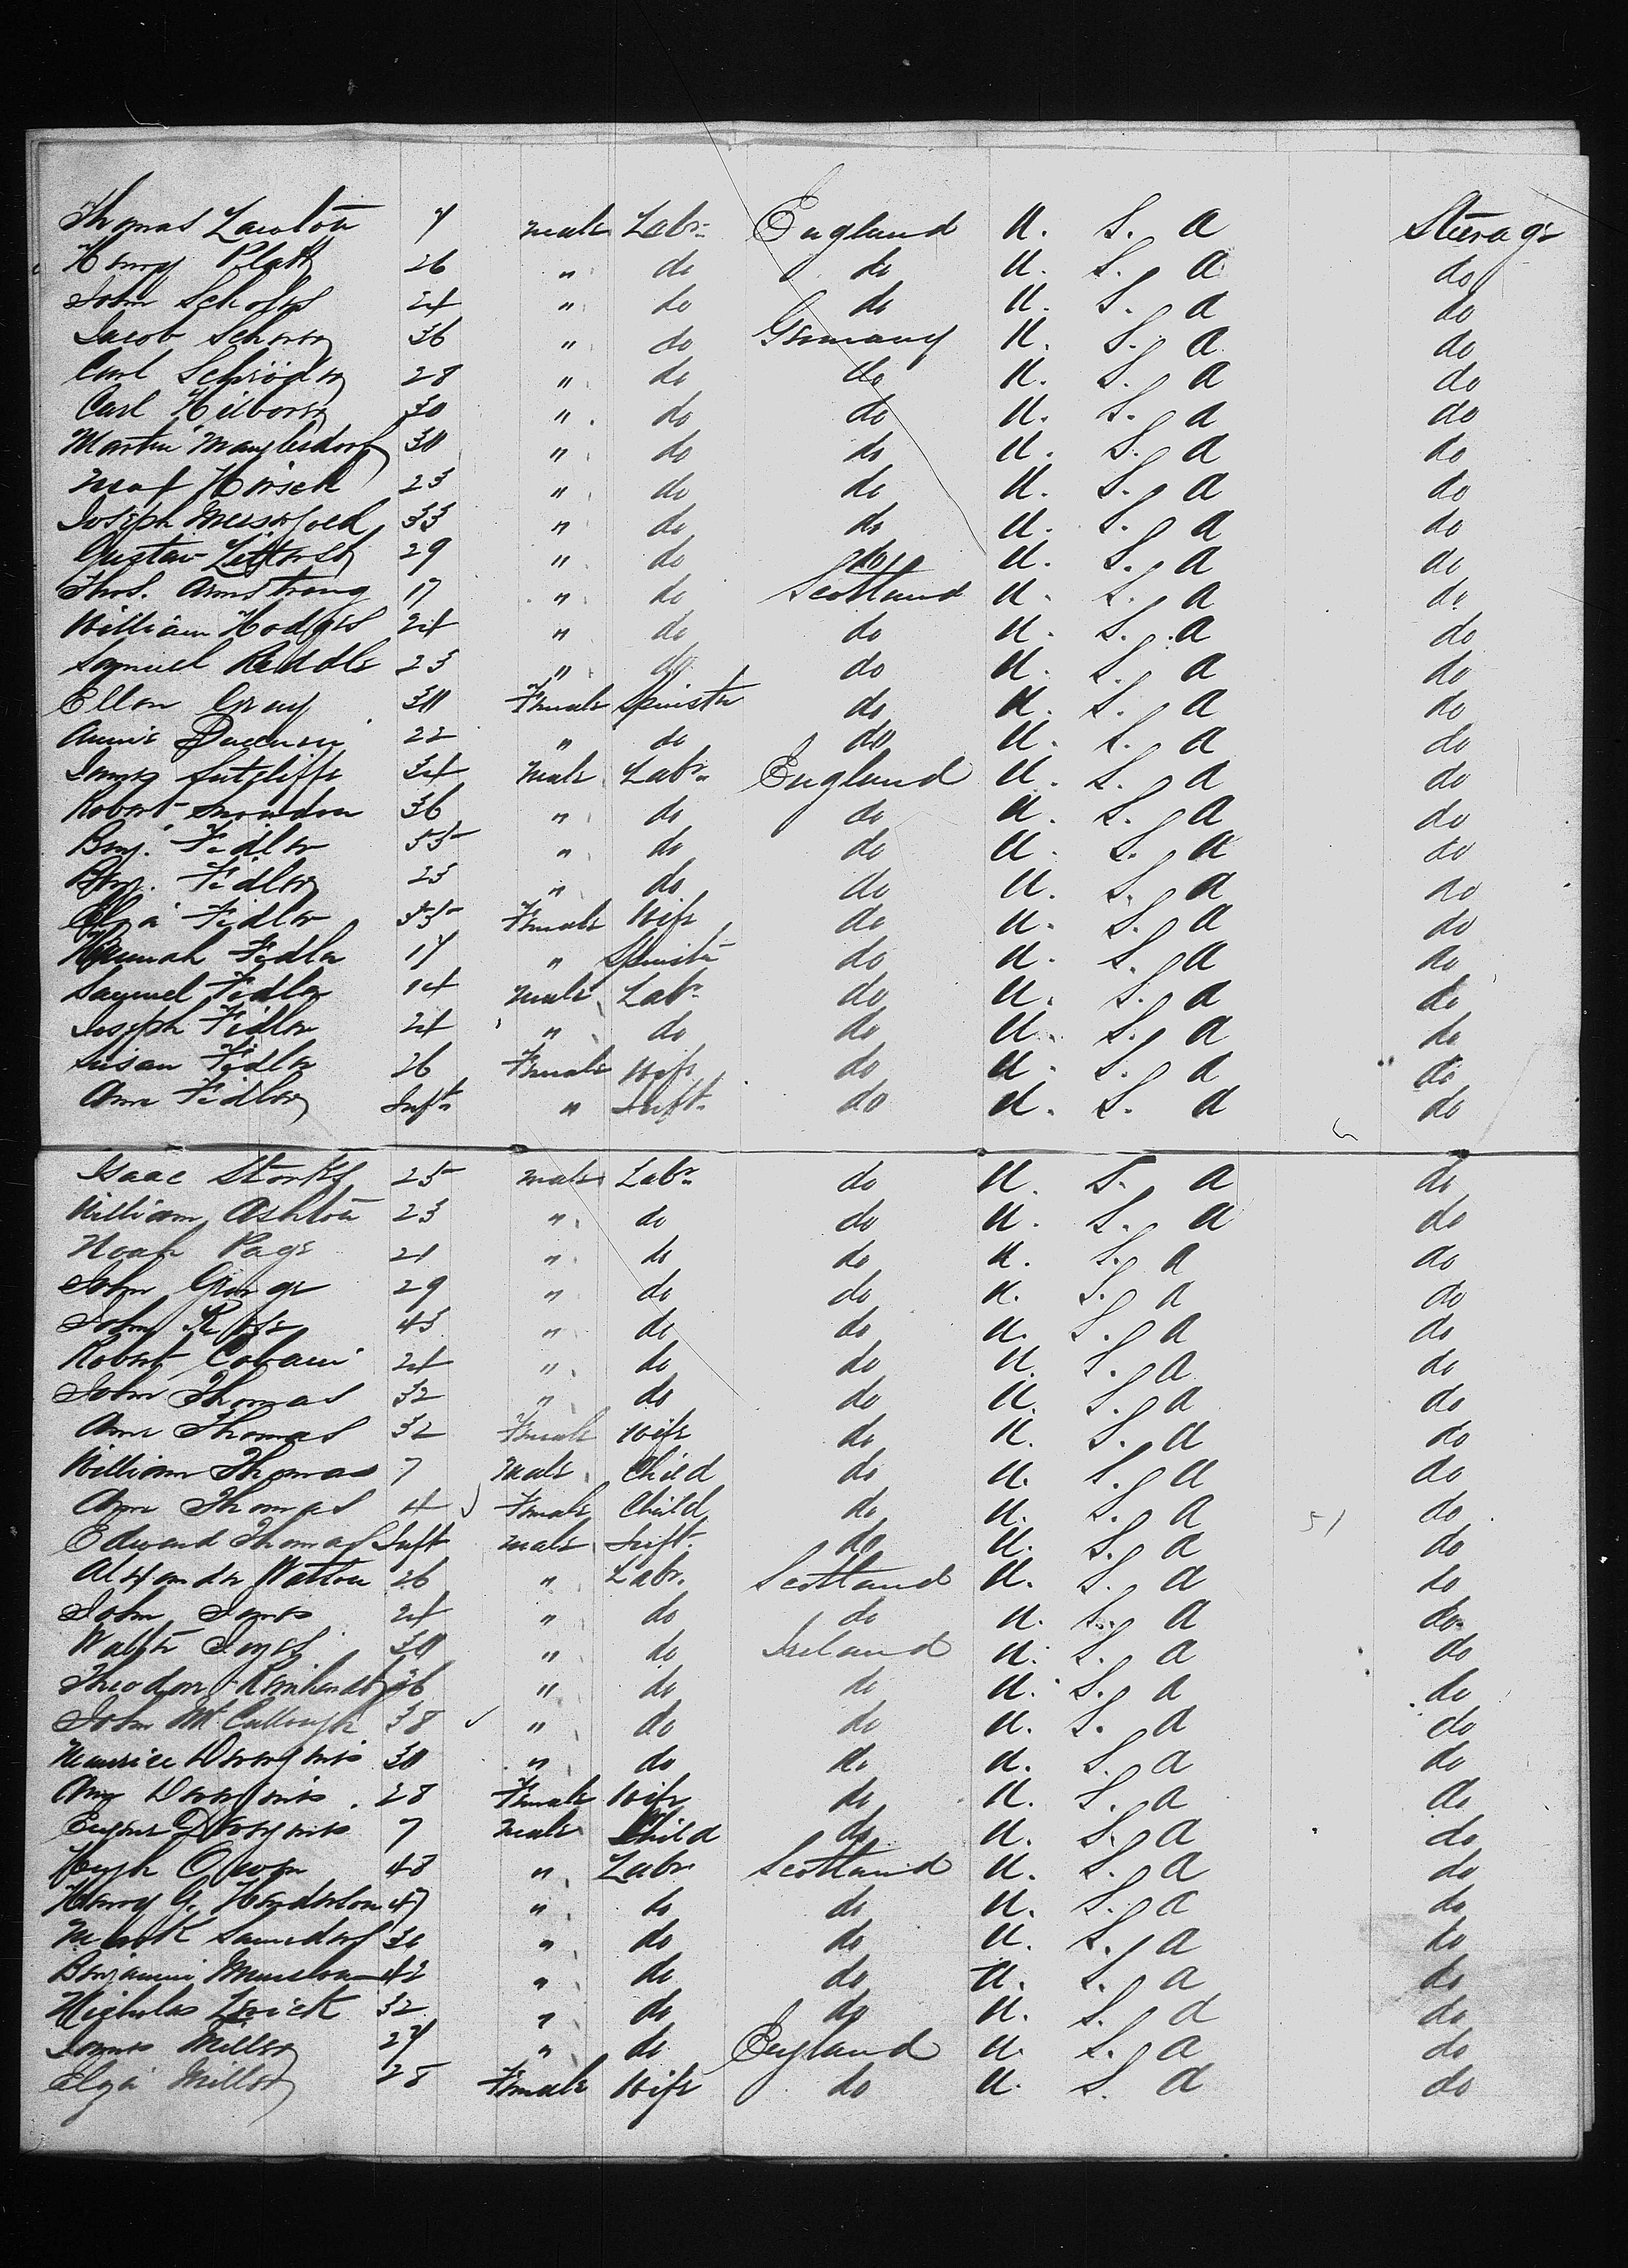 Thomas Lawton 7 male Labr England U. S. A Steerage
Henry Platt 26 " do do U. S. A do
John Scholes 24 " do do U. S. A do
Jacob 36 " do Germany U. S. A do
Carl Schröder 28 " do do U. S. A do
Carl 30 " do do U. S. A do
Martin Manglesdorf 30 " do do U. S. A do
Max Hirsch 23 " do do U. S. A do
Joseph 33 " do do U. S. A do
Gustav 29 " do do U. S. A do
Thos. Armstrong 17 " do Scotland U. S. A do
William Hodges 24 " do do U. S. A do
Samuel Reddle 23 " do do U. S. A do
Ellen Gray 30 Female Spinster do U. S. A do
Annie 22 " do do U. S. A do
James Sutcliffe 34 male Labr England U. S. A do
Robert Snowdon 36 " do do U. S. A do
Benj. Fidler 55 " do do U. S. A do
Benj. Fidler 23 " do do U. S. A do
Eliza Fidler 55 Female Wife do U. S. A do
Hannah Fidler 17 " Spinster do U. S. A do
Samuel Fidler 14 male Labr do U. S. A do
Joseph Fidler 24 " do do U. S. A do
Susan Fidler 26 Female Wife do U. S. A do
Ann Fidler Inft " Inft do U. S. A do
Isaac Storks 25 male Labr do U. S. A do
William Ashton 23 " do do U. S. A do
Noah Page 21 " do do U. S. A do
John George 29 " do do U. S. A do
John 43 " do do U. S. A do
Robert 24 " do do U. S. A do
John Thomas 32 " do do U. S. A do
Ann Thomas 32 Female Wife do U. S. A do
William Thomas 7 male Child do U. S. A do
Ann Thomas 4 Female Child do U. S. A 51 do
Edward Thomas Inft male Inft do U. S. A do
Alexander Watson 26 " Labr Scotland U. S. A do
John Jones 24 " do do U. S. A do
Walter 30 " do Ireland U. S. A do
Theodore 26 " do do U. S. A do
John McCullough 38 " do do U. S. A do
Maurice 30 " do do U. S. A do
Amy 28 Female Wife do U. S. A do
Eugene 7 male Child do U. S. A do
Hugh Owen 43 " Labr Scotland U. S. A do
Henry G. Henderson 47 " do do U. S. A do
Mark Saunders 30 " do do U. S. A do
Benjamin 42 " do do U. S. A do
Nicholas 32 " do do U. S. A do
James Miller 27 " do England U. S. A do
Eliza Miller 28 Female Wife do U. S. A do